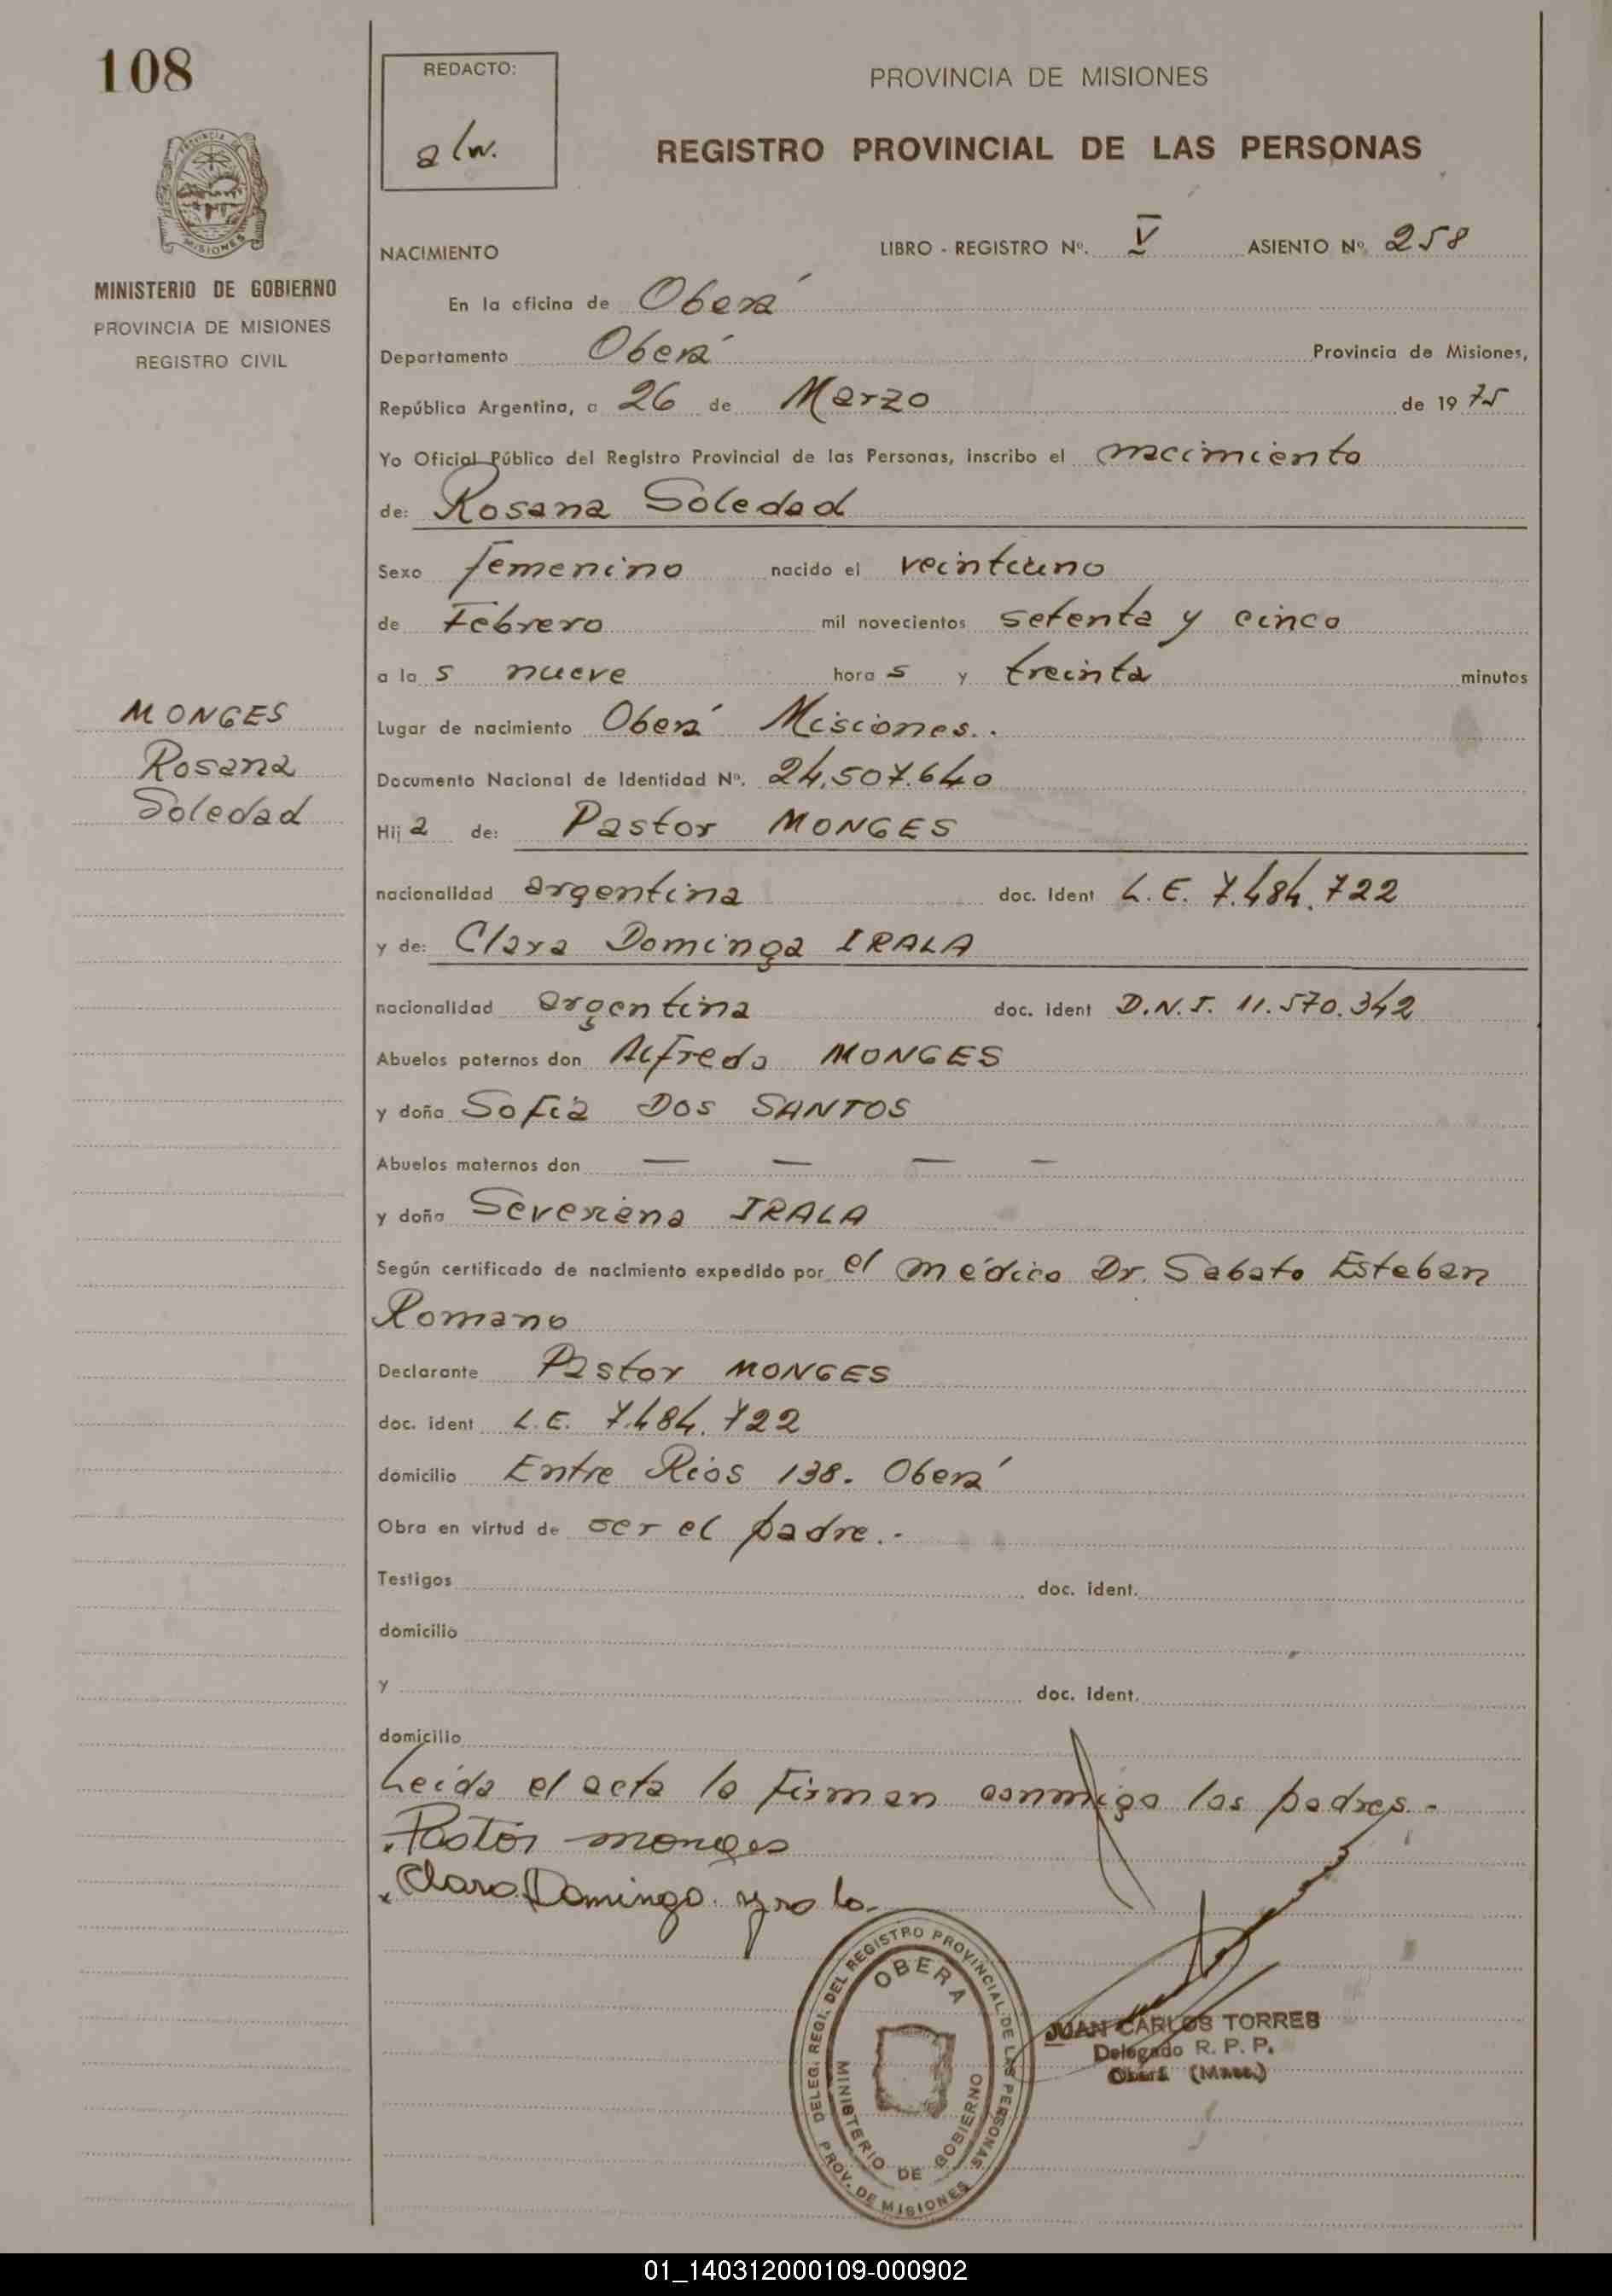 108
REDACTO:
alw.
PROVINCIA DE MISIONES
REGISTRO PROVINCIAL DE LAS PERSONAS
MINISTERIO DE GOBIERNO
PROVINCIA DE MISIONES
REGISTRO CIVIL
NACIMIENTO LIBRO - REGISTRO Nº. V ASIENTO Nº. 258
En la oficina de Oberá
Departamento Oberá Provincia de Misiones,
República Argentina, a 26 de Marzo de 1975
Yo Oficial Público del Registro Provincial de las Personas, inscribo el nacimiento
de: Rosana Soledad
Sexo femenino nacido el veintiuno
de Febrero mil novecientos setenta y cinco
a las nueve horas y treinta minutos
MONGES
Rosana
Soledad
Lugar de nacimiento Oberá Misiones.
Documento Nacional de Identidad Nº. 24.507.640
Hija de: Pastor MONGES
nacionalidad argentina doc. Ident L.E. 7.484.722
y de: Clara Dominga IRALA
nacionalidad argentina doc. Ident D.N.I. 11.570.342
Abuelos paternos don Alfredo MONGES
y doña Sofia DOS SANTOS
Abuelos maternos don — — — —
y doña Severiana IRALA
Según certificado de nacimiento expedido por el médico Dr. Sabato Esteban
Romano
Declarante Pastor MONGES
doc. ident L.E. 7.484.722
domicilio Entre Rios 138. Oberá
Obra en virtud de ser el padre.-
Testigos doc. ident.
domicilio
y doc. ident.
domicilio
Leída el acta la firman conmigo los padres.-
Pastor monges
Clara Dominga yrala
DELEG. REGI. DEL REGISTRO PROVINCIAL DE LAS PERSONAS
OBERA
MINISTERIO DE GOBIERNO
PROV. DE MISIONES
JUAN CARLOS TORRES
Delegado R. P. P.
Oberá (Mnes.)
01_140312000109-000902